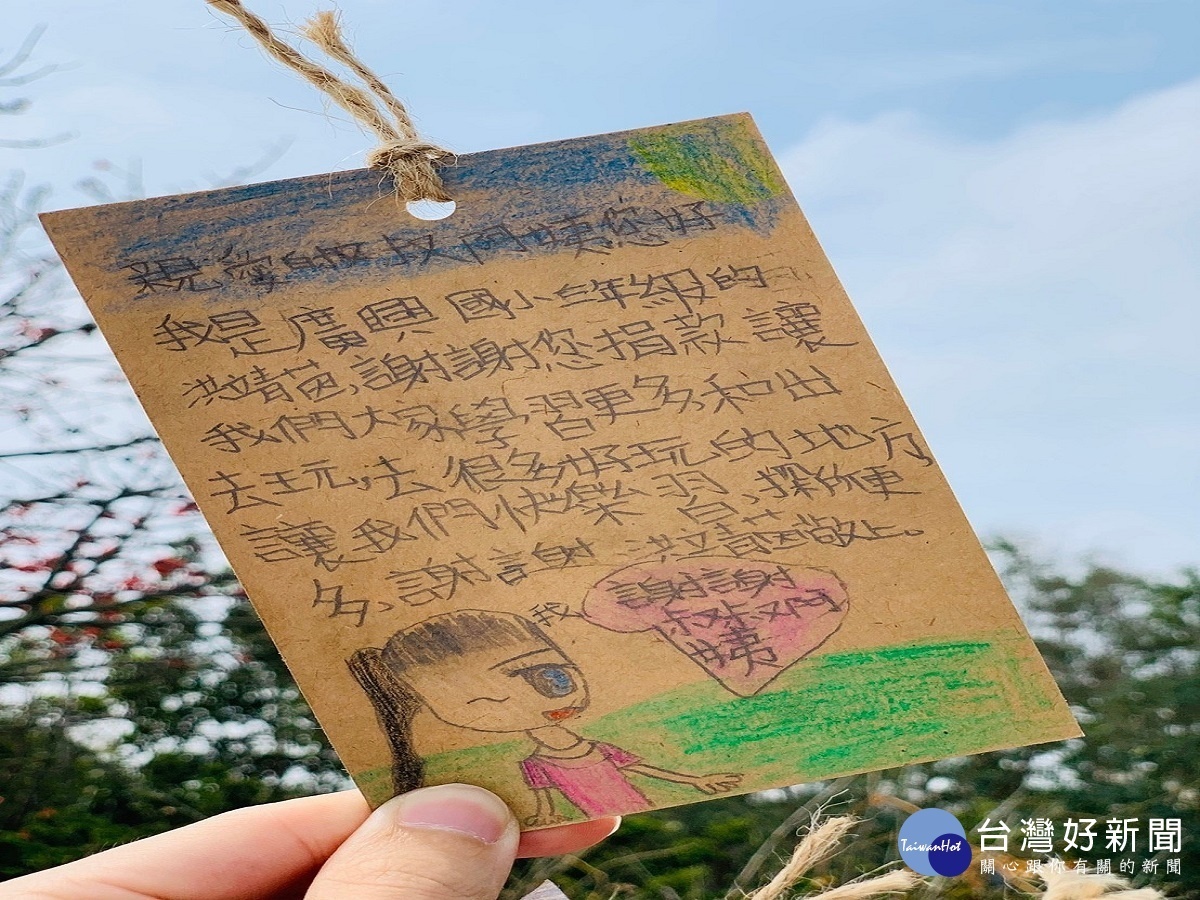 親愛的叔叔阿姨您好
我是廣興國小三年級的
洪靖茵,謝謝您捐款讓
我們大家學習更多,和出
去玩,去很多好玩的地方
讓我們快樂學習,探所更
多,謝謝 洪靖茵敬上。
我
謝謝
叔叔阿
姨
TaiwanHot
台灣好新聞
關心跟你有關的新聞